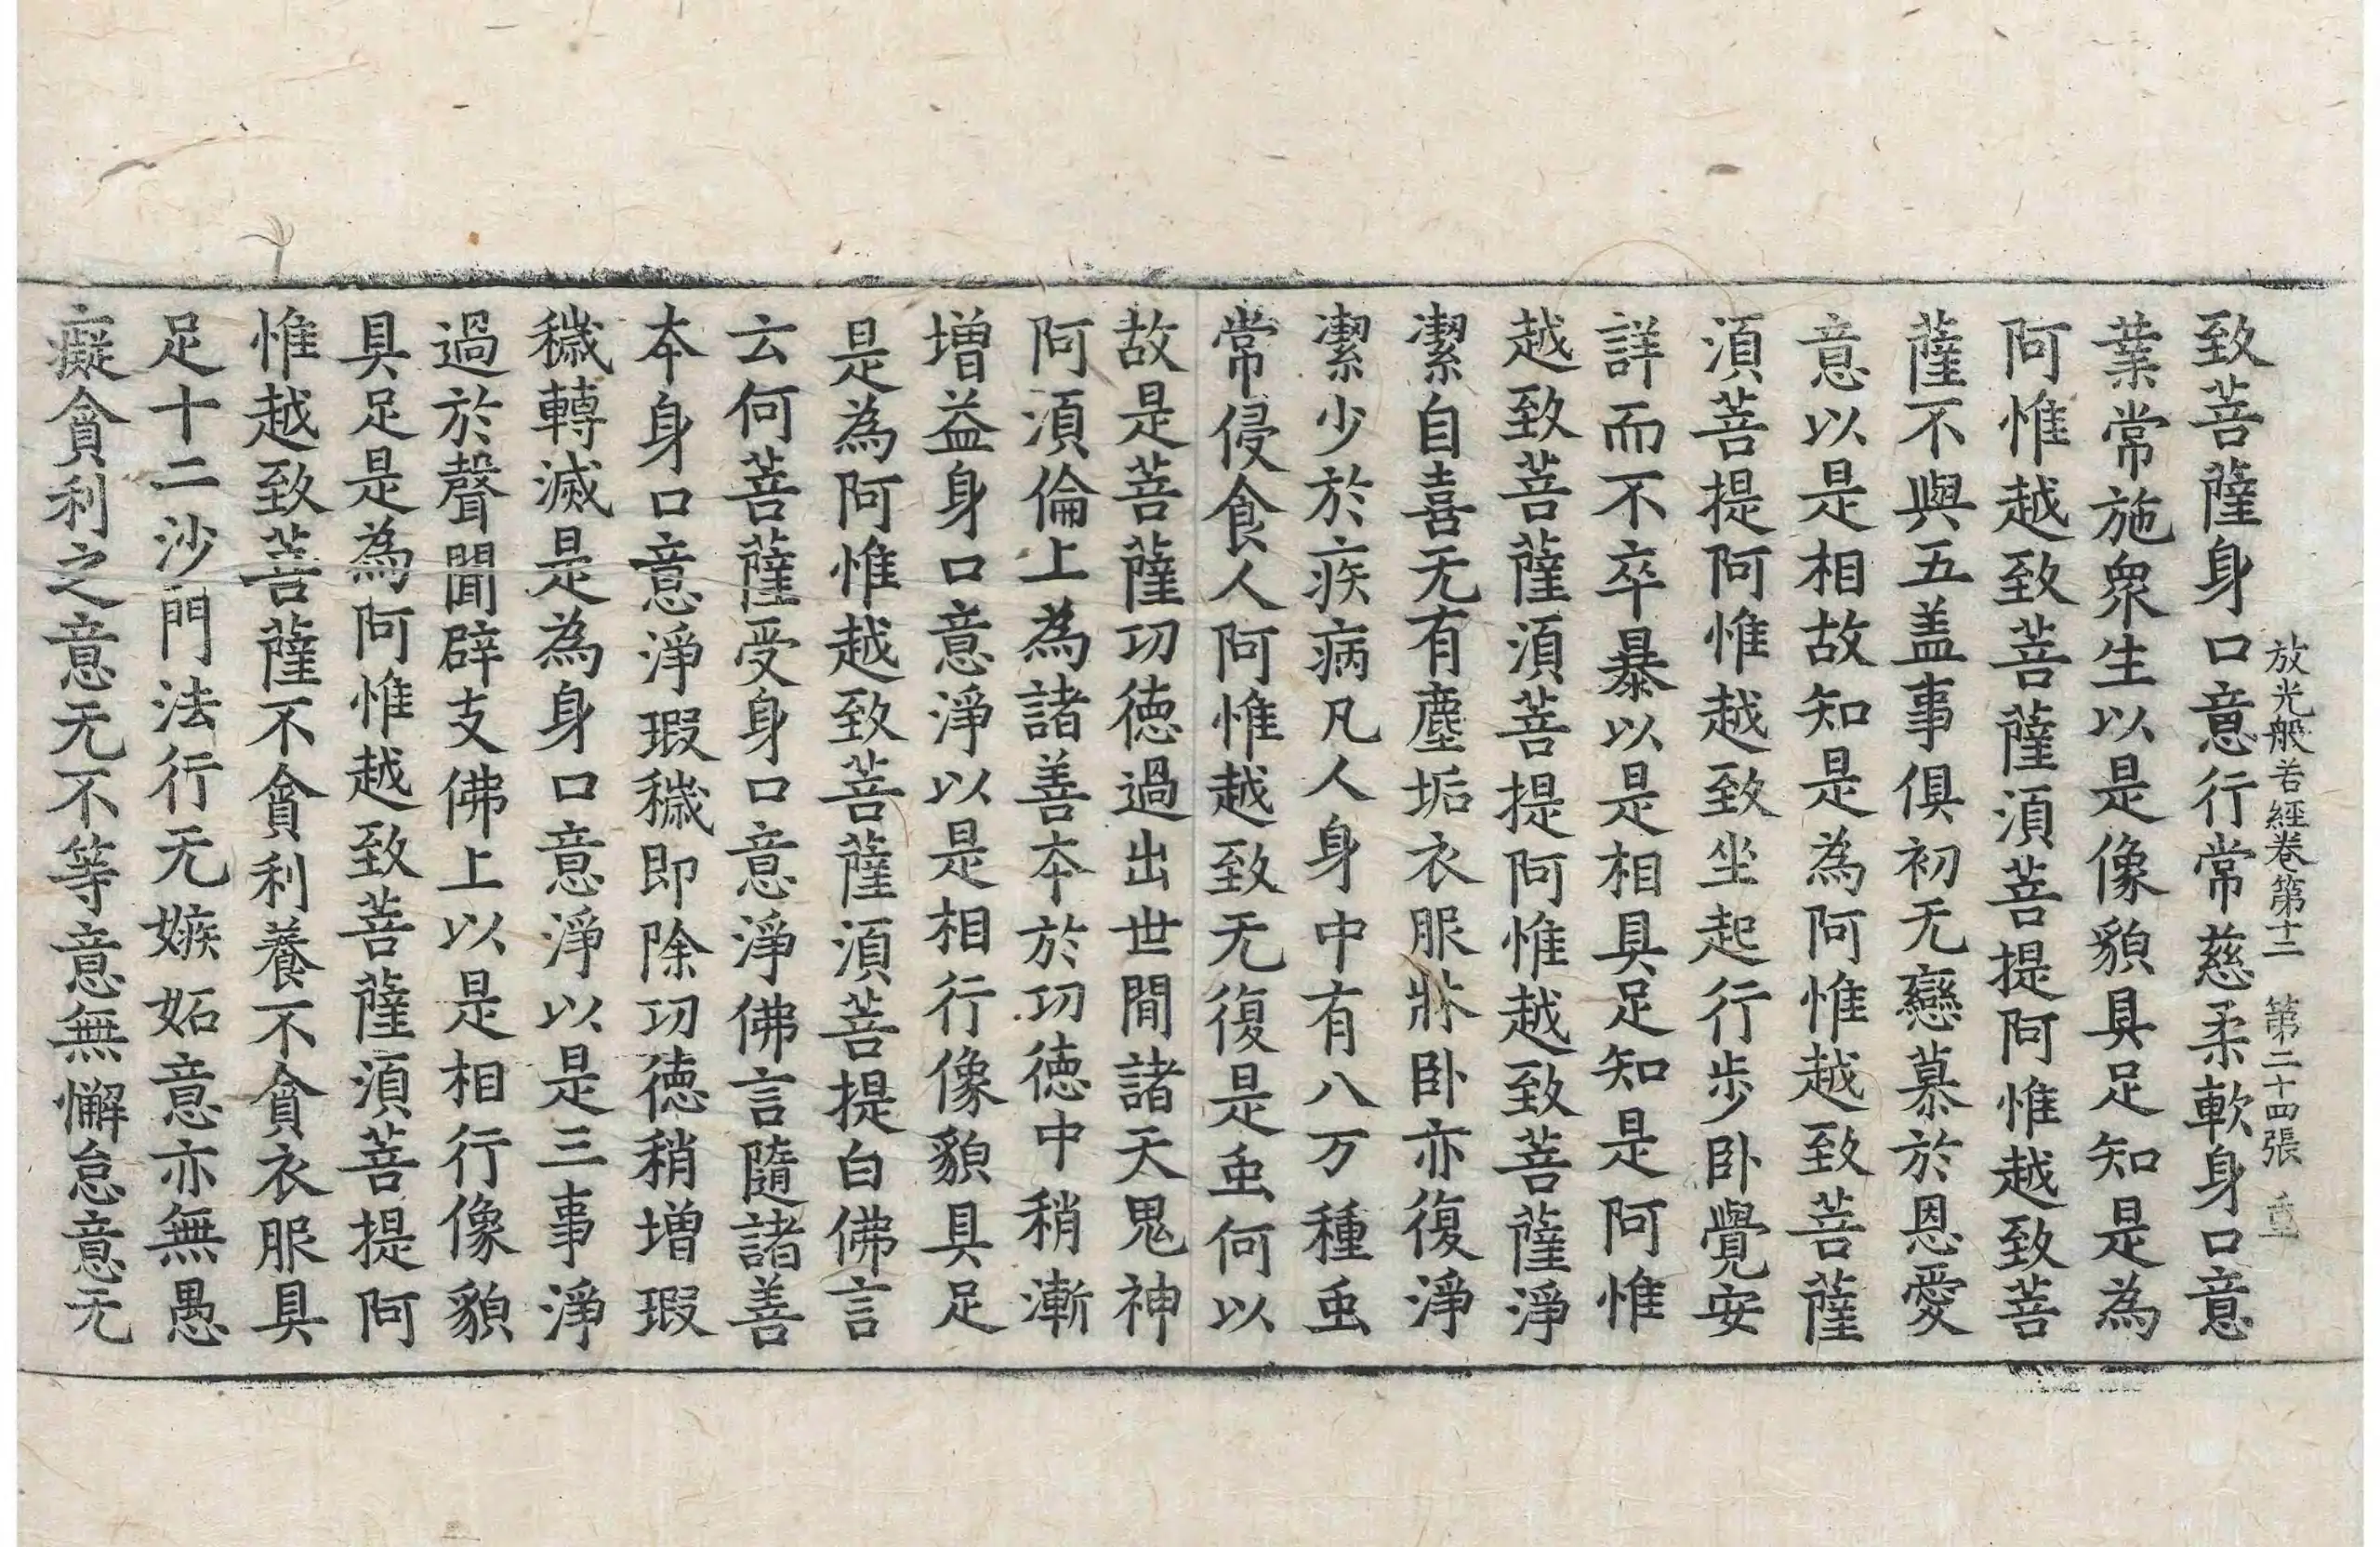 放光般若經卷第十二 第二十四張 重
致菩薩身口意行常慈柔軟身口意
業常施衆生以是像貌具足知是為
阿惟越致菩薩須菩提阿惟越致菩
薩不與五盖事俱初无戀慕於恩愛
意以是相故知是為阿惟越致菩薩
須菩提阿惟越致坐起行步卧覺安
詳而不卒暴以是相具足知是阿惟
越致菩薩須菩提阿惟越致菩薩淨
潔自喜无有塵垢衣服牀卧亦復淨
潔少於疾病凡人身中有八万種虫
常侵食人阿惟越致无復是虫何以
故是菩薩功德過出世間諸天鬼神
阿須倫上為諸善本於功德中稍漸
增益身口意淨以是相行像貌具足
是為阿惟越致菩薩須菩提白佛言
云何菩薩受身口意淨佛言隨諸善
本身口意淨瑕穢即除功德稍增瑕
穢轉滅是為身口意淨以是三事淨
過於聲聞辟支佛上以是相行像貌
具足是為阿惟越致菩薩須菩提阿
惟越致菩薩不貪利養不貪衣服具
足十二沙門法行无嫉妬意亦無愚
癡貪利之意无不等意無懈怠意无